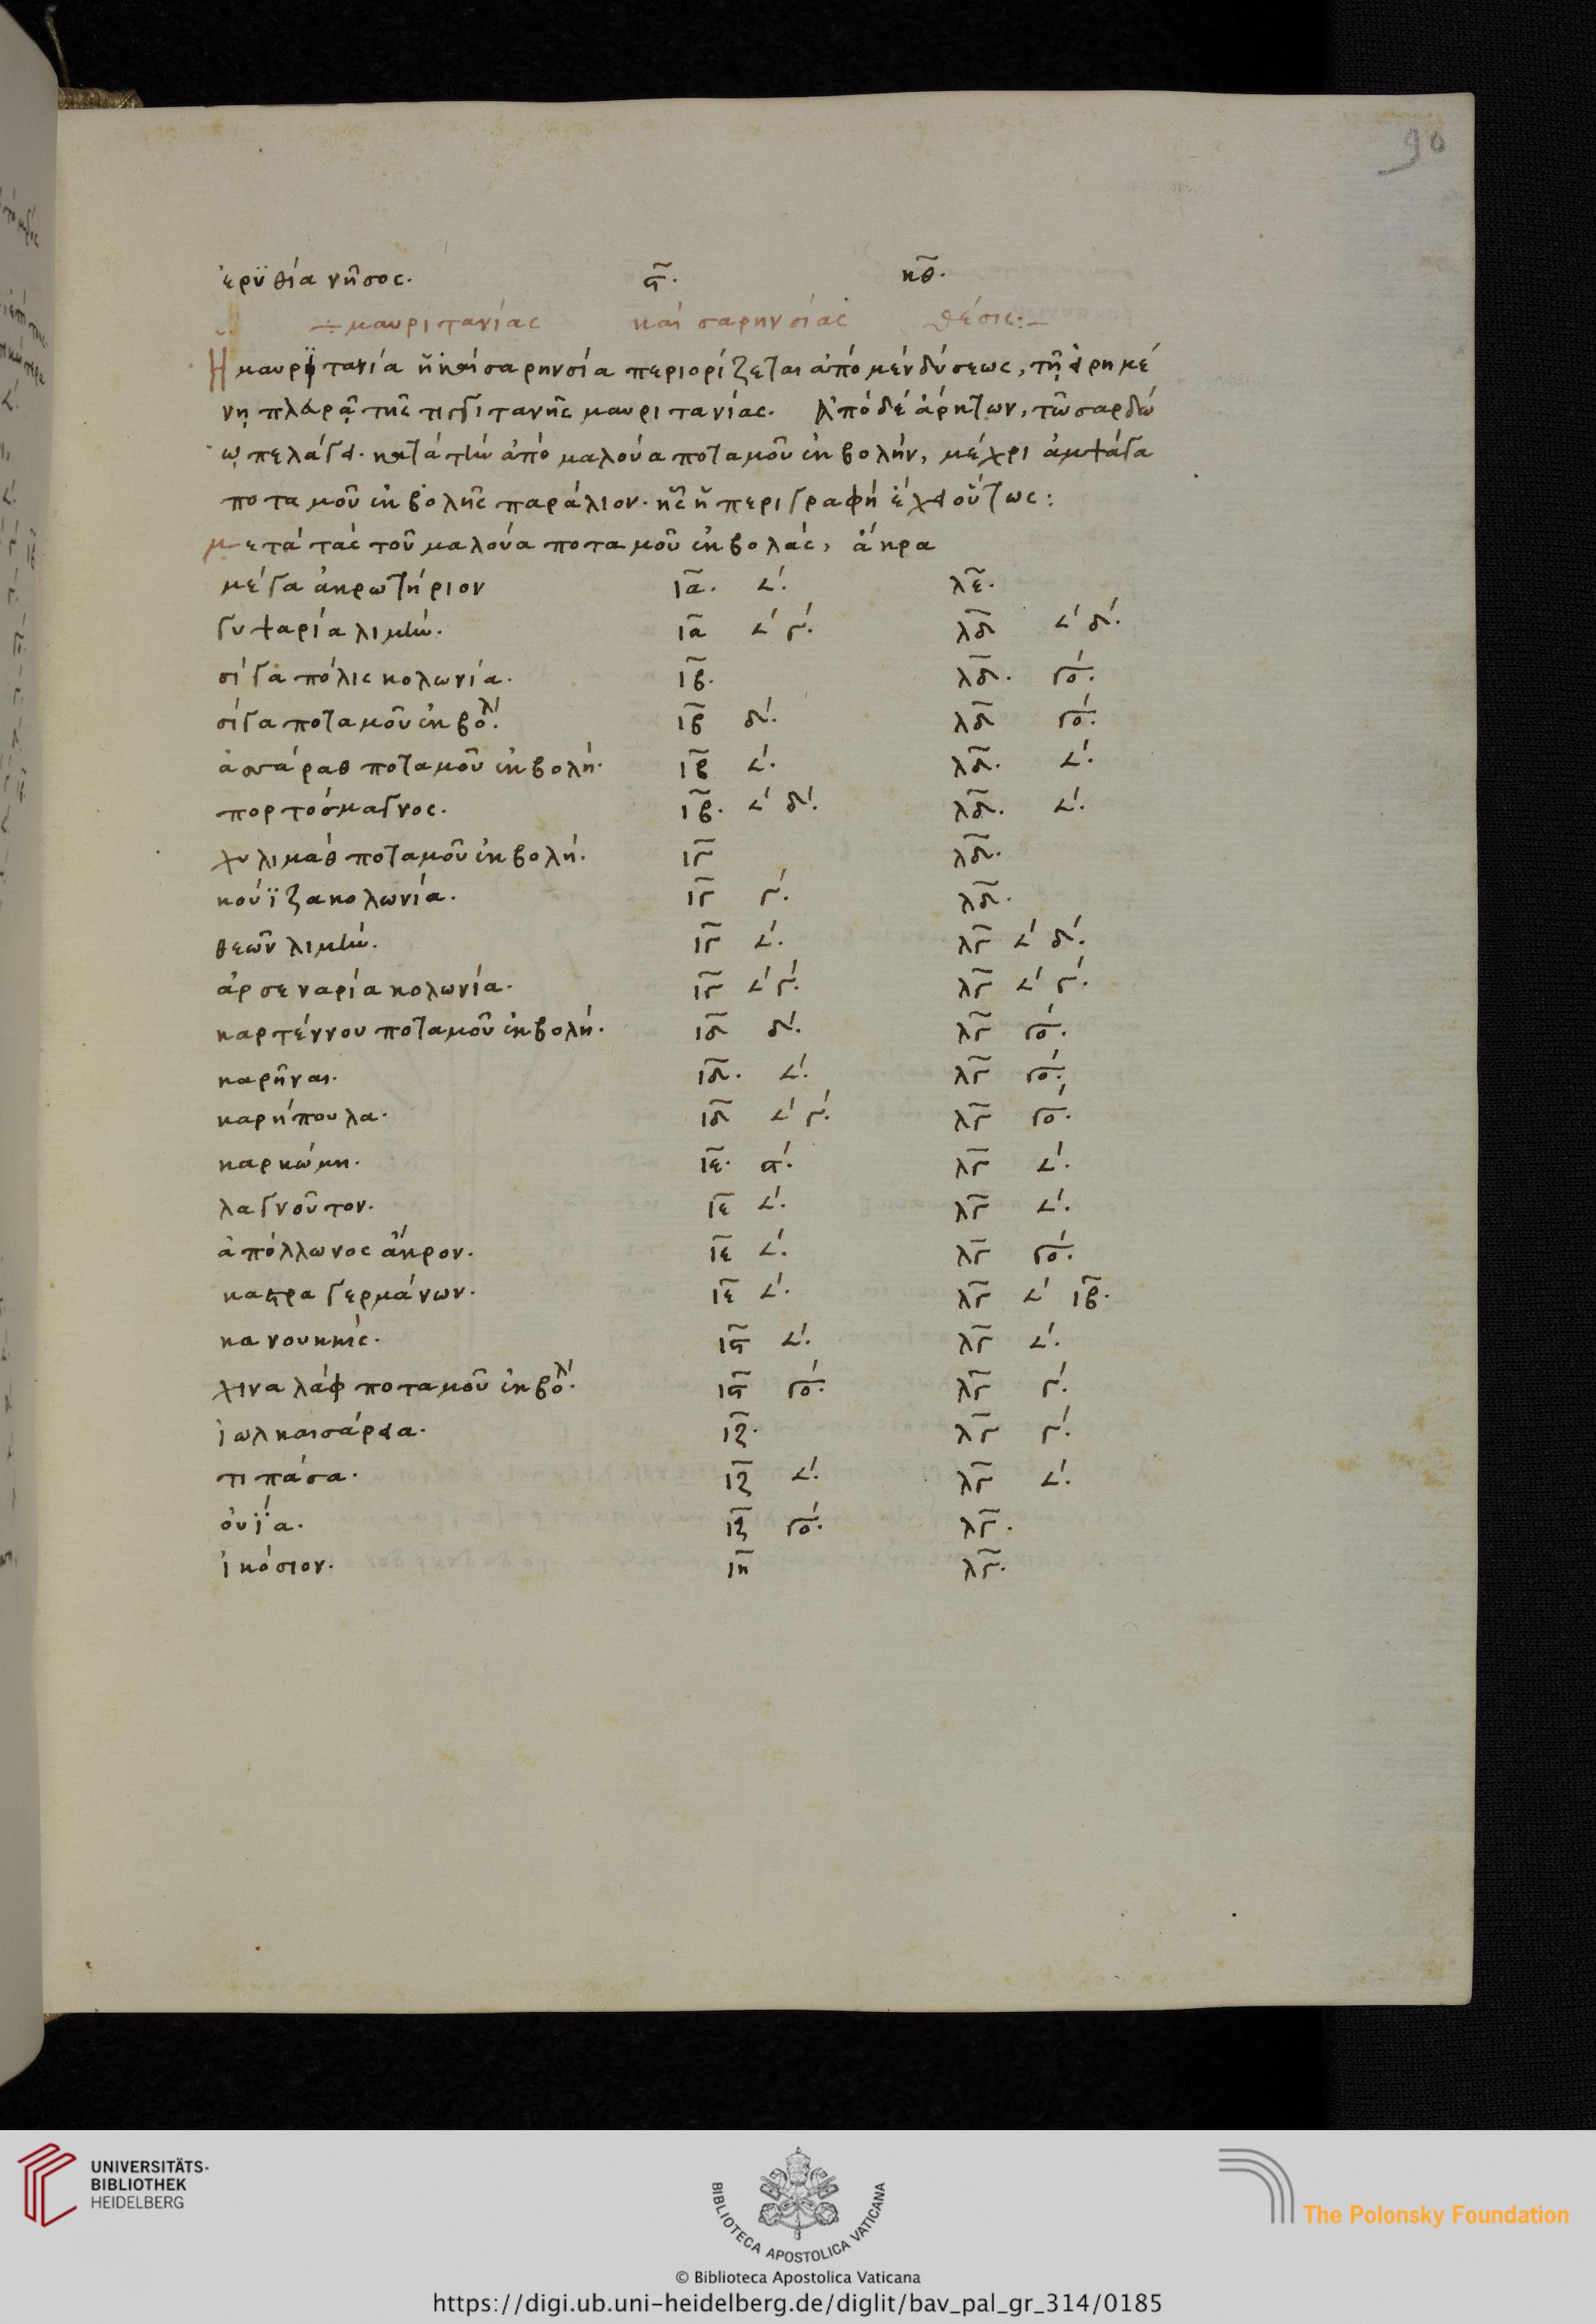 90
ἐρϋθία νῆσος. ϛ̅. κ̅θ̅.
μαυριτανίας καισαρηνσίας θέσις:
Ἡ μαυριτανία ἡ καισαρηνσία περιορίζεται ἀπὸ μὲν δύσεως, τῇ εἰρημέ
νῃ πλευρᾷ τῆς τιγγιτανῆς μαυριτανίας. Ἀπὸ δὲ ἄρκτων, τῶ σαρδώ
ω πελάγει. κατὰ τὴν ἀπὸ μαλούα ποταμοῦ ἐκβολήν, μέχρι ἀμψάγα
ποταμοῦ ἐκβολῆς παράλιον. ἧς ἡ περιγραφὴ ἔχει οὕτως:
μετὰ τὰς τοῦ μαλούα ποταμοῦ ἐκβολάς, ἄκρα
μέγα ἀκρωτήριον ι̅α̅. 𐅵. λ̅ε̅.
γυψαρία λιμήν. ι̅α̅ 𐅵 γ´. λ̅δ̅ 𐅵 δ´.
σίγα πόλις κολωνία. ι̅β̅. λ̅δ̅. γο´.
σίγα ποταμοῦ ἐκβολ´. ι̅β̅ δ´. λ̅δ̅ γο´.
ἀσσάραθ ποταμοῦ ἐκβολή. ι̅β̅ 𐅵. λ̅δ̅. 𐅵.
πορτοσμαγνος. ι̅β̅. 𐅵 δ´. λ̅δ̅. 𐅵.
χυλιμαθ ποταμοῦ ἐκβολή. ι̅γ̅ λ̅δ̅.
κούϊζα κολωνία. ι̅γ̅ γ´. λ̅δ̅.
θεῶν λιμήν. ι̅γ̅ 𐅵. λ̅γ̅ 𐅵 δ´.
ἀρσεναρία κολωνία. ι̅γ̅ 𐅵 γ´. λ̅γ̅ 𐅵 γ´.
καρτέννου ποταμοῦ ἐκβολή. ι̅δ̅ δ´. λ̅γ̅ γο´.
καρῆναι. ι̅δ̅. 𐅵. λ̅γ̅ γο´.
καρήπουλα. ι̅δ̅ 𐅵 γ´. λ̅γ̅ γο´.
καρκώμη. ι̅ε̅. ϛ´. λ̅γ̅ 𐅵.
λαγνοῦτον. ι̅ε̅ 𐅵. λ̅γ̅ 𐅵.
ἀπόλλωνος ἄκρον. ι̅ε̅ 𐅵. λ̅γ̅ γο´.
καστρα γερμάνων. ι̅ε̅ 𐅵. λ̅γ̅ 𐅵 ι̅β̅.
κανουκκίς. ι̅ϛ̅ 𐅵. λ̅γ̅ 𐅵.
χιναλάφ ποταμοῦ ἐκβολ´. ι̅ϛ̅ γο´. λ̅γ̅ γ´.
ἰωλ καισάρεια. ι̅ζ̅. λ̅γ̅ γ´.
τιπάσα. ι̅ζ̅ 𐅵. λ̅γ̅ 𐅵.
ὀυΐα. ι̅ζ̅ γο´. λ̅γ̅.
ἰκόσιον. ι̅η̅ λ̅γ̅.
UNIVERSITÄTS-
BIBLIOTHEK
HEIDELBERG
BIBLIOTECA APOSTOLICA VATICANA
The Polonsky Foundation
© Biblioteca Apostolica Vaticana
https://digi.ub.uni-heidelberg.de/diglit/bav_pal_gr_314/0185